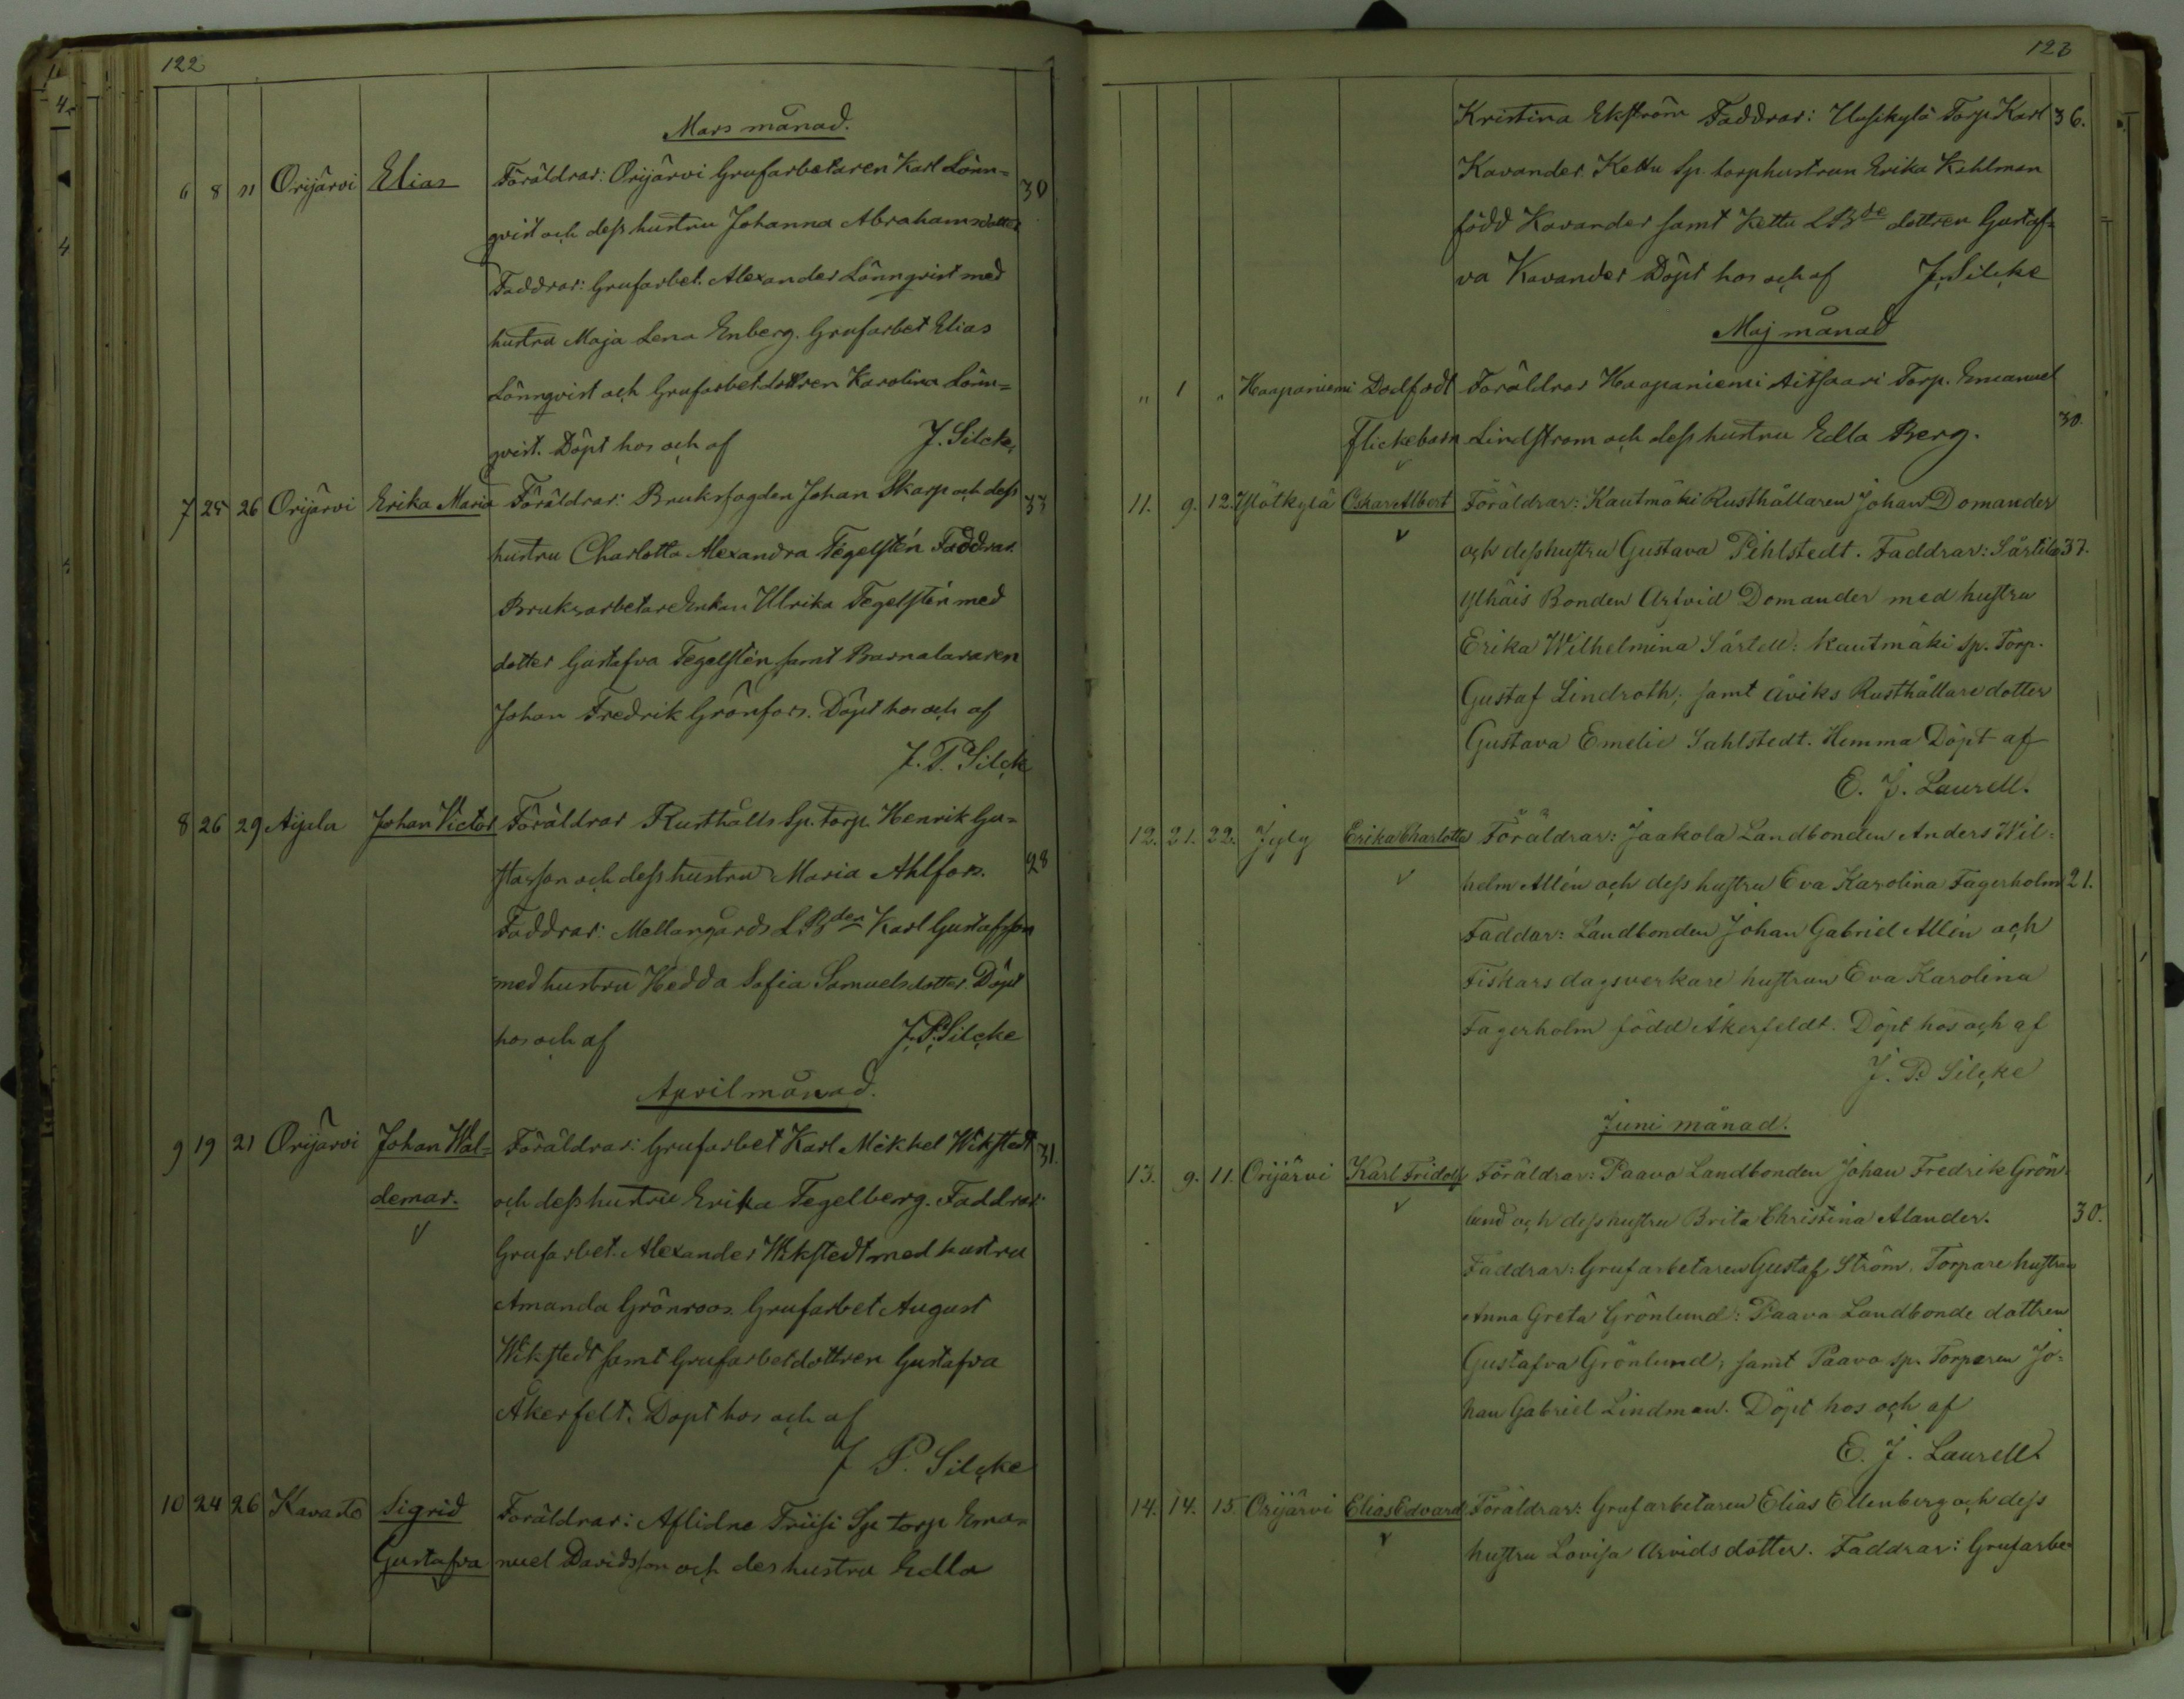 122
Mars månad.
6 8 11 Orijärvi Elias Föräldrar: Orijärvi Grufarbetaren Karl Lönn= 30
qvist och dess hustru Johanna Abrahamsdotter
Faddrar: Grufarbet. Alexander Lönnqvist med
hustru Maja Lena Enberg. Grufarbet Elias
Lönnqvist och Grufarbet. dottren Karolina Lönn=
qvist. Döpt hos och af J. Silcke,
7 25 26 Orijärvi Erika Maria Föräldrar: Bruksfogden Johan Skarp och dess 33
hustru Charlotta Alexandra Tegelstén Faddrar.
Bruksarbetare Enkan Ulrika Tegelstén med
dotter Gustafva Tegelstén samt Barnalararen
Johan Fredrik Grönfors. Döpt hos och af
J. P. Silck
8 26 29 Aijala Johan Victor Föräldrar Rusthålls Sp. torp. Henrik Gu=
stafson och dess hustru Maria Ahlfors. 28
Faddrar: Mellangårds L.B.den Karl Gustafsson
med hustru Hedda Sofia Samuelsdotter. Döpt
hos och af J. P. Silcke
April månad.
9 19 21 Orijärvi Johan Wal= Föräldrar: Grufarbet Karl Mikkel Wikstedt 31.
demar. och dess hustru Erika Tegelberg. Faddrar:
Grufarbet. Alexander Wikstedt med hustru
Amanda Grönroos. Grufarbet August
Wikstedt samt Grufarbetdottren Gustafva
Åkerfelt. Döpt hos och af
J P. Silcke
10 24 26 Kavasto Sigrid Föräldrar: Aflidne Triisi Sp torp Ema=
Gustafva nuel Davidsson och des hustru Edla
123
Kristina Ekström Faddrar: Torp Karl 36.
Kavander. Kettu Sp. torphustrun Erika Kahlman
född Kavander samt Kettu LBde dottren Gustaf=
va Kavander Döpt hos och af J. Silcke
Maj månad
" 1 " Haapaniemi Dödfödt Föräldrar Haapaniemi Aitsaari Torp. Emanuel
flickebarn Lindstrom och dess hustru Edla Berg. 30.
11. 9. 12. Ylötkylä Oskar Albert Föräldrar: Kautmäki Rusthållaren Johan Domander
och dess hustru Gustava Pihlstedt. Faddrar: Särkilä 37.
Ylhäis Bonden Arfvid Domander med hustru
Erika Wilhelmina Särtell: Kautmäki sp. Torp.
Gustaf Lindroth, samt Åviks Rusthållare dotter
Gustava Emelie Sahlstedt. Hemma Döpt af
E. J. Laurell.
12. 21. 22. Jyly Erika Charlotta Föräldrar: Jaakola Landbonden Anders Wil=
helm Allén och dess hustru Eva Karolina Fagerholm 21.
Faddar: Landbonden Johan Gabriel Allén och
Fiskars dagsverkare hustrun Eva Karolina
Fagerholm född Åkerfeldt. Döpt hos och af
J. P. Silcke
Juni månad.
13. 9. 11. Orijärvi Karl Fridolf Föräldrar: Paavo Landbonden Johan Fredrik Grön
lund och dess hustru Brita Christina Alander. 30.
Faddrar: Grufarbetaren Gustaf Ström. Torpare hustrun
Anna Greta Grönlund: Paavo Landbonde dottren
Gustafva Grönlund, samt Paavo sp. Torparen Jo=
han Gabriel Lindman. Döpt hos och af
E. J. Laurell
14. 14. 15. Orijärvi Elias Edvard Föräldrar: Grufarbetaren Elias Ellenberg och dess
hustru Lovisa Arvidsdotter. Faddrar: Grufarbe